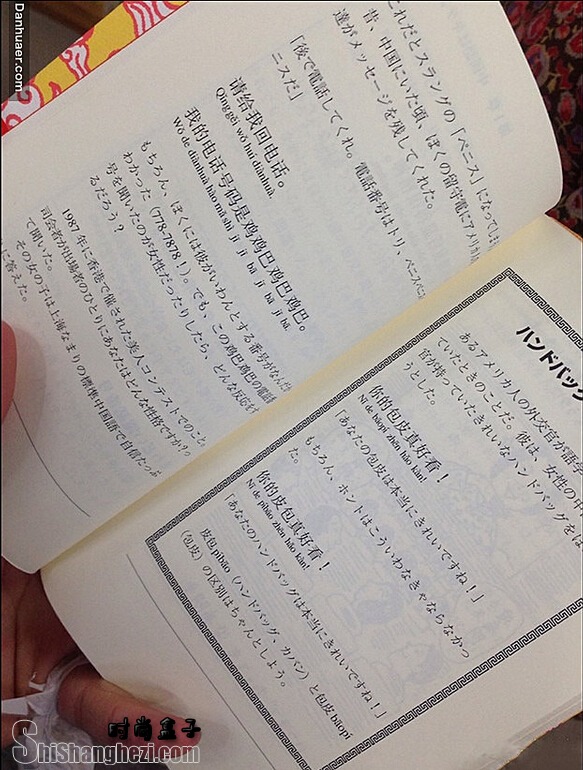 Danhuaer.com
れだとスラングの「ペニス」になってしま
昔、中国にいた頃、ぼくの留守電にアメリカ
達がメッセージを残してくれた。
「後で電話してくれ。電話番号はトリ、ペニス
ニスだ」
请给我回电话。
Qǐng gěi wǒ huí diànhuà.
我的电话号码是鸡鸡巴鸡巴鸡巴。
Wǒ de diànhuà hào mǎ shì jī jī bā jī bā jī bā.
もちろん、ぼくには彼がいわんとする番号がなんだか
わかった（778-7878！）。でも、この鸡巴鸡巴の電話
号を聞いたのが女性だったりしたら、どんな反応を
るだろう？
1987年に香港で催された美人コンテストでのこと。
司会者が出場者のひとりにあなたはどんな性格ですか？
て聞いた。
その女の子は上海なまりの標準中国語で自信たっぷ
に答えた。
ハンドバッグ
あるアメリカ人の外交官が語学
ていたときのことだ。彼は、女性の中
官が持っていたきれいなハンドバッグをほ
うとした。
你的包皮真好看！
Nǐ de bāopí zhēn hǎo kàn!
「あなたの包皮は本当にきれいですね！」
もちろん、ホントはこういわなきゃならなかっ
た。
你的皮包真好看！
Nǐ de píbāo zhēn hǎo kàn!
「あなたのハンドバッグは本当にきれいですね！」
皮包 píbāo（ハンドバッグ、カバン）と包皮 bāopí
（包皮）の区別はちゃんとしよう。
时尚盒子
ShiShanghezi.com